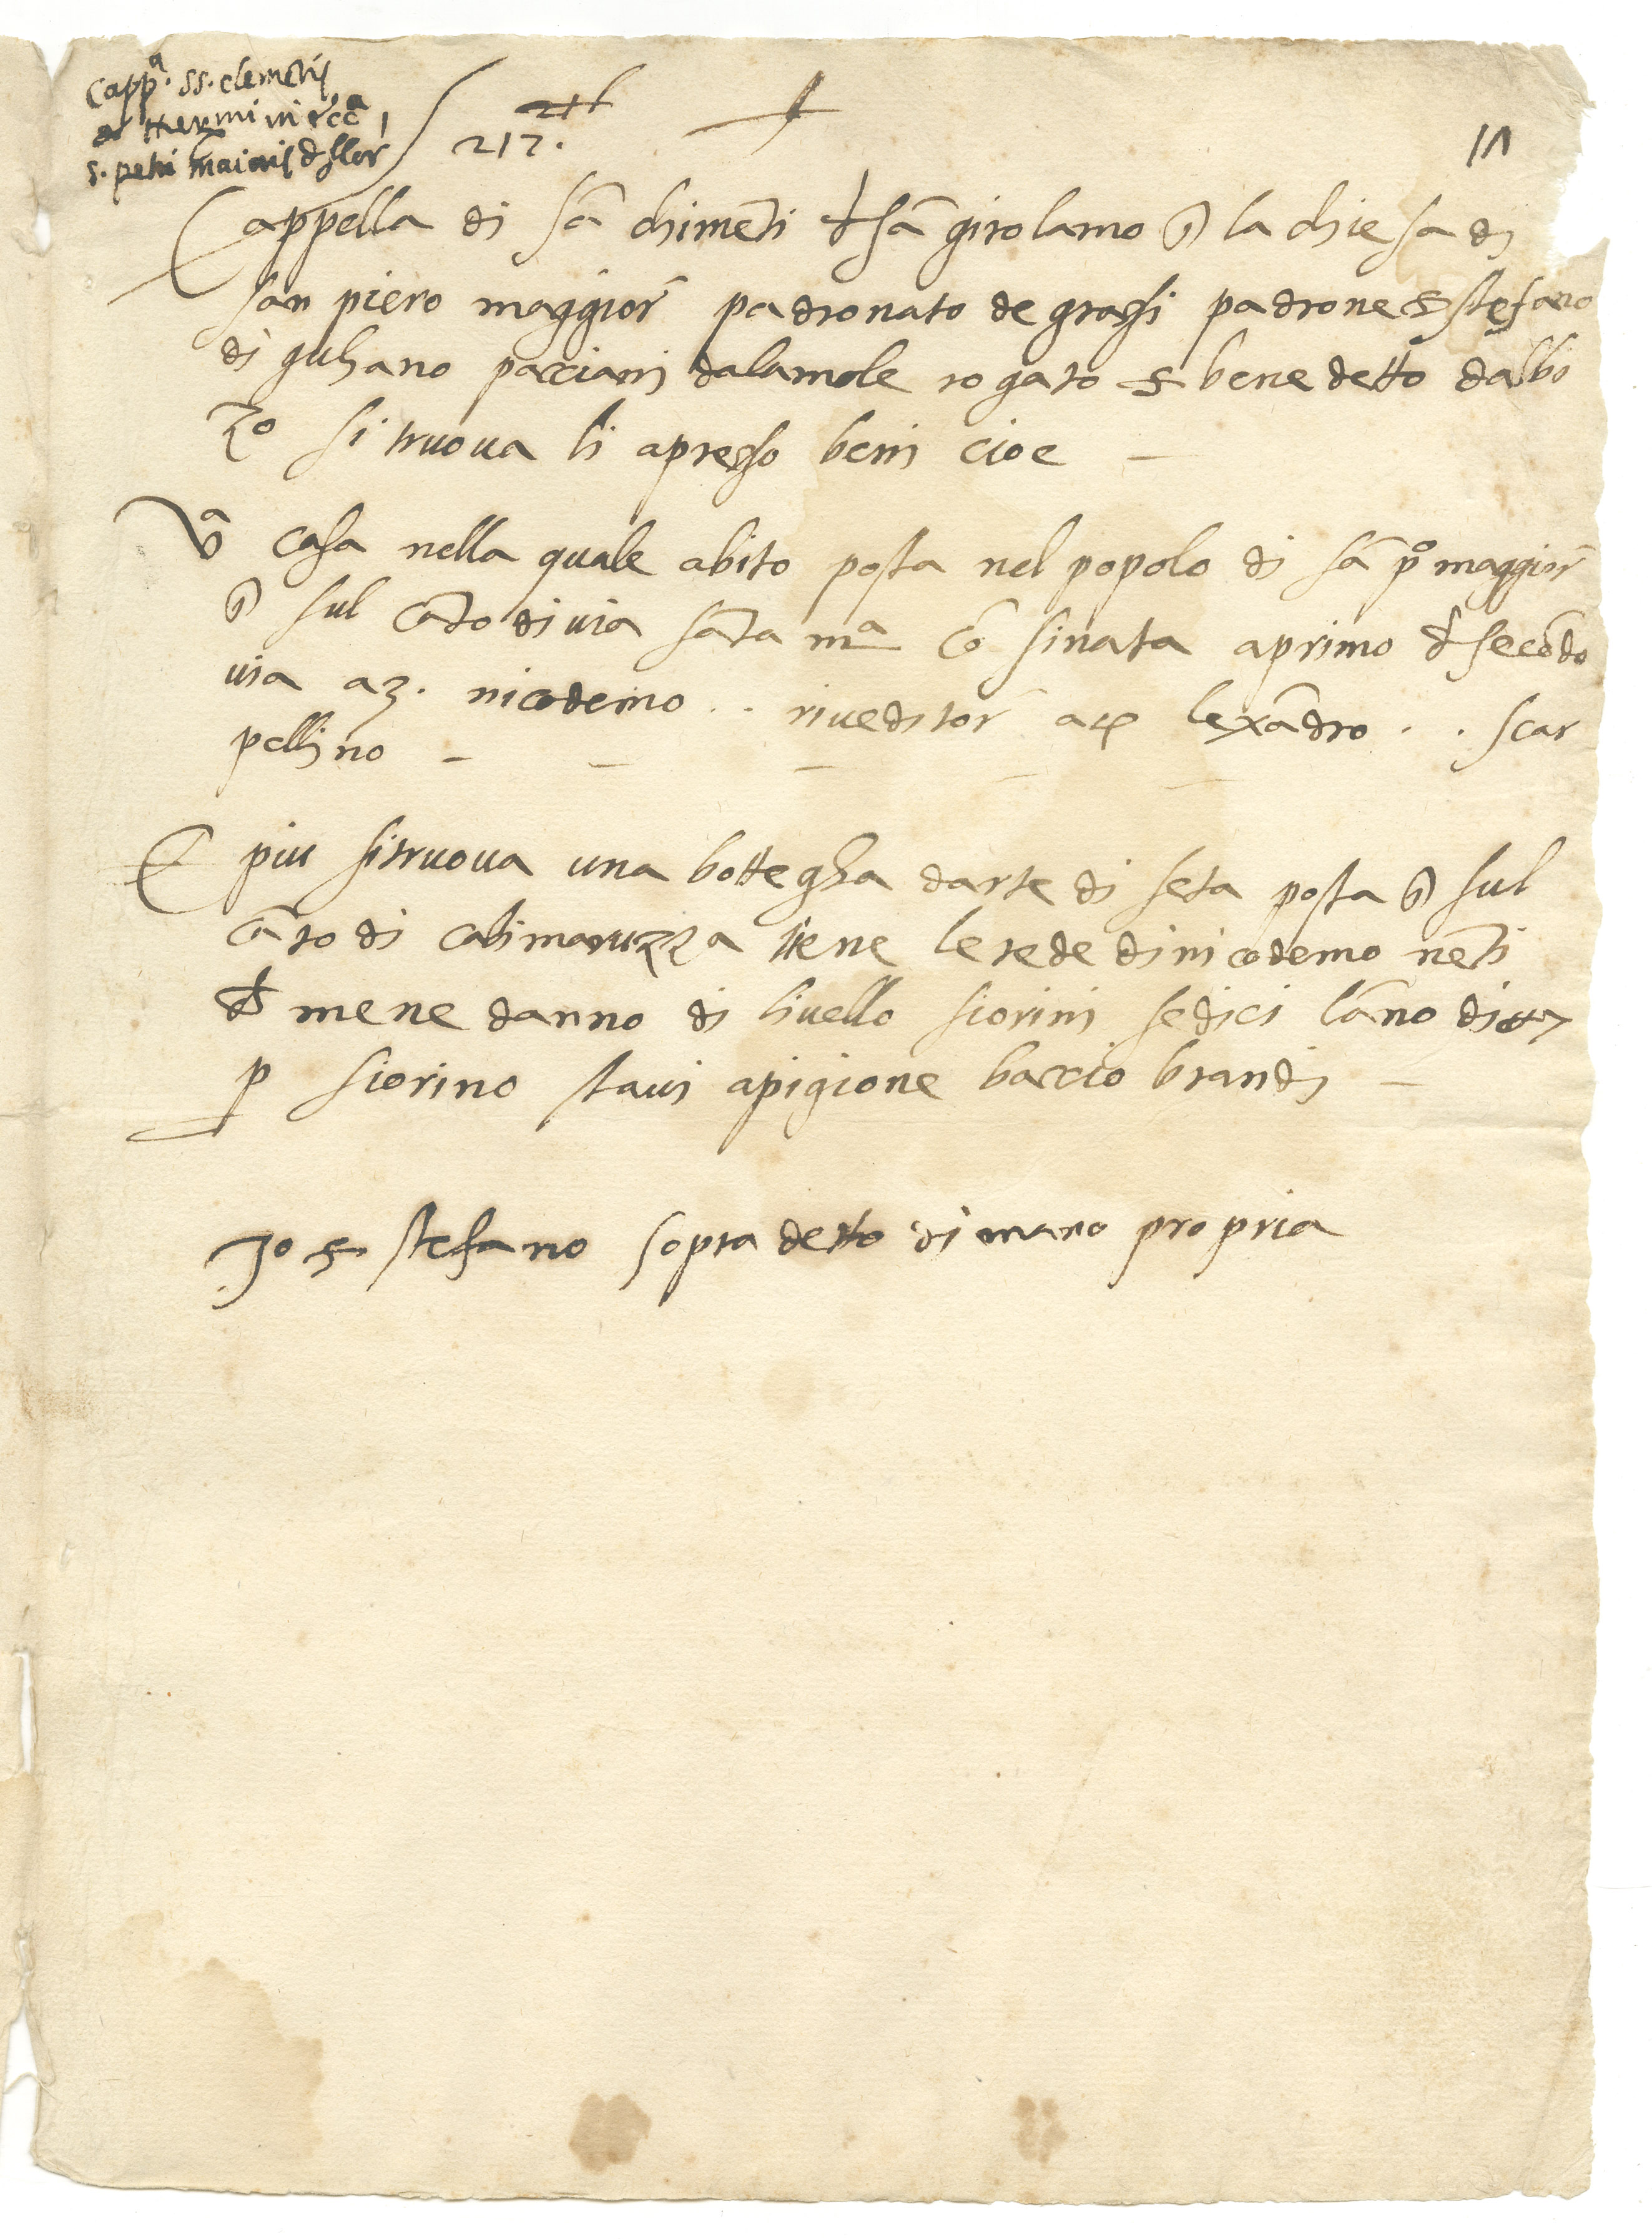 Capp.ª ss. clemētis
Hermi in ecc.ª
s. petri maioris d flor
217.
Cappella di sā chimēti & sā girolamo ī la chiesa di
san piero maggior̄ padronato de grassi padrone s stefano
di guliano pacciani dalamole rogato s benedetto dalbi
zo si truova li apresso beni cioe –
Vª casa nella quale abito posta nel popolo di sā pº maggior̄
ī sul cāto di via sāta mª cō finata a primo & secōdo
via a 3. nicodemo . . riveditor̄ a 4 lexādro . . scar
pellino –
E piu si truova una botteghа darte di seta posta ī sul
cāto di calimaruzza tiene le rede di nicodemo nēti
& mene danno di livello fiorini sedici lāno di 7
p fiorino stavi a pigione baccio brandi –
Io s stefano sopra detto di mano propria